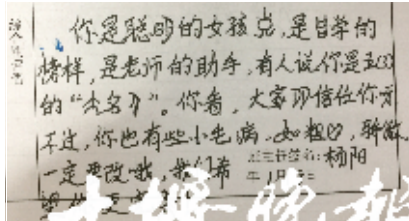 你是聪明的女孩兒,是同学的
榜样,是老师的助手,有人说你是五(3)
的“大名刀”。你看,大家那信任你方
不过,你也有些小毛病,如粗心,骄傲
一定要改哦,我们希 班主任签名:杨阳
年 月 日
望你更
十堰晚报